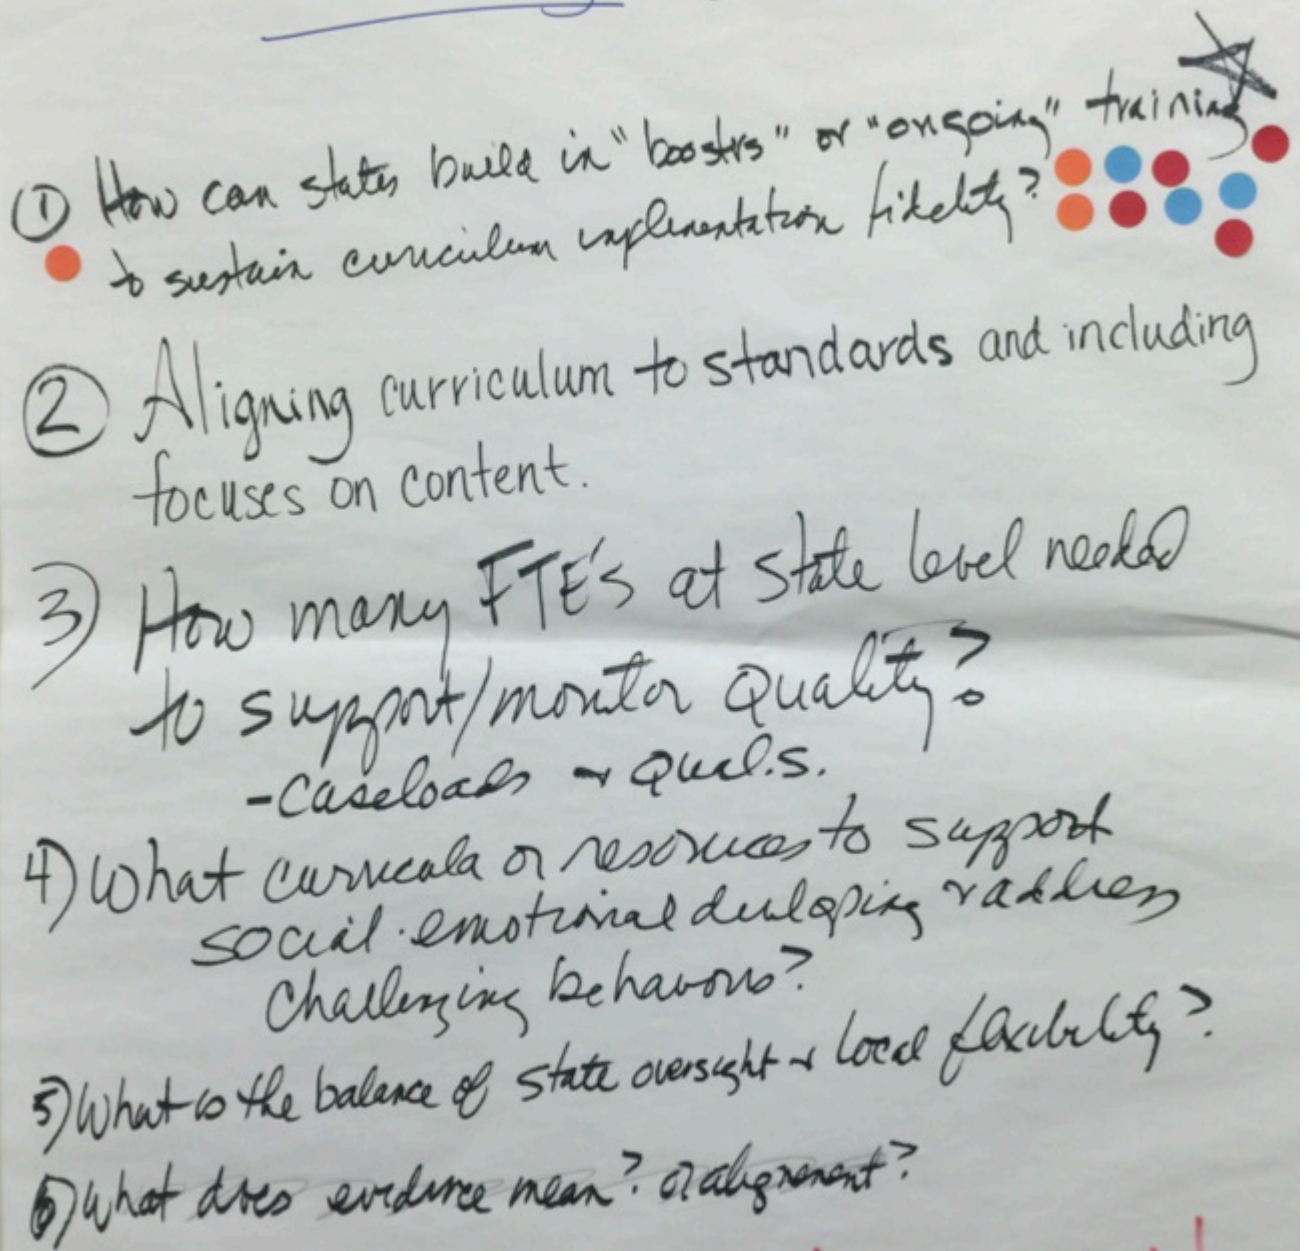 ① How can states build in "boostrs" or "ongoing" training
to sustain curriculum implementation fidelity?
② Aligning curriculum to standards and including
focuses on content.
3) How many FTE's at state level needed
to support/monitor Quality?
- Caseloads + Qual.s.
4) What curricula or resources to support
social-emotional developing + address
challenging behaviors?
5) What is the balance of state oversight + local flexibility?
6) What does evidence mean? or alignment?